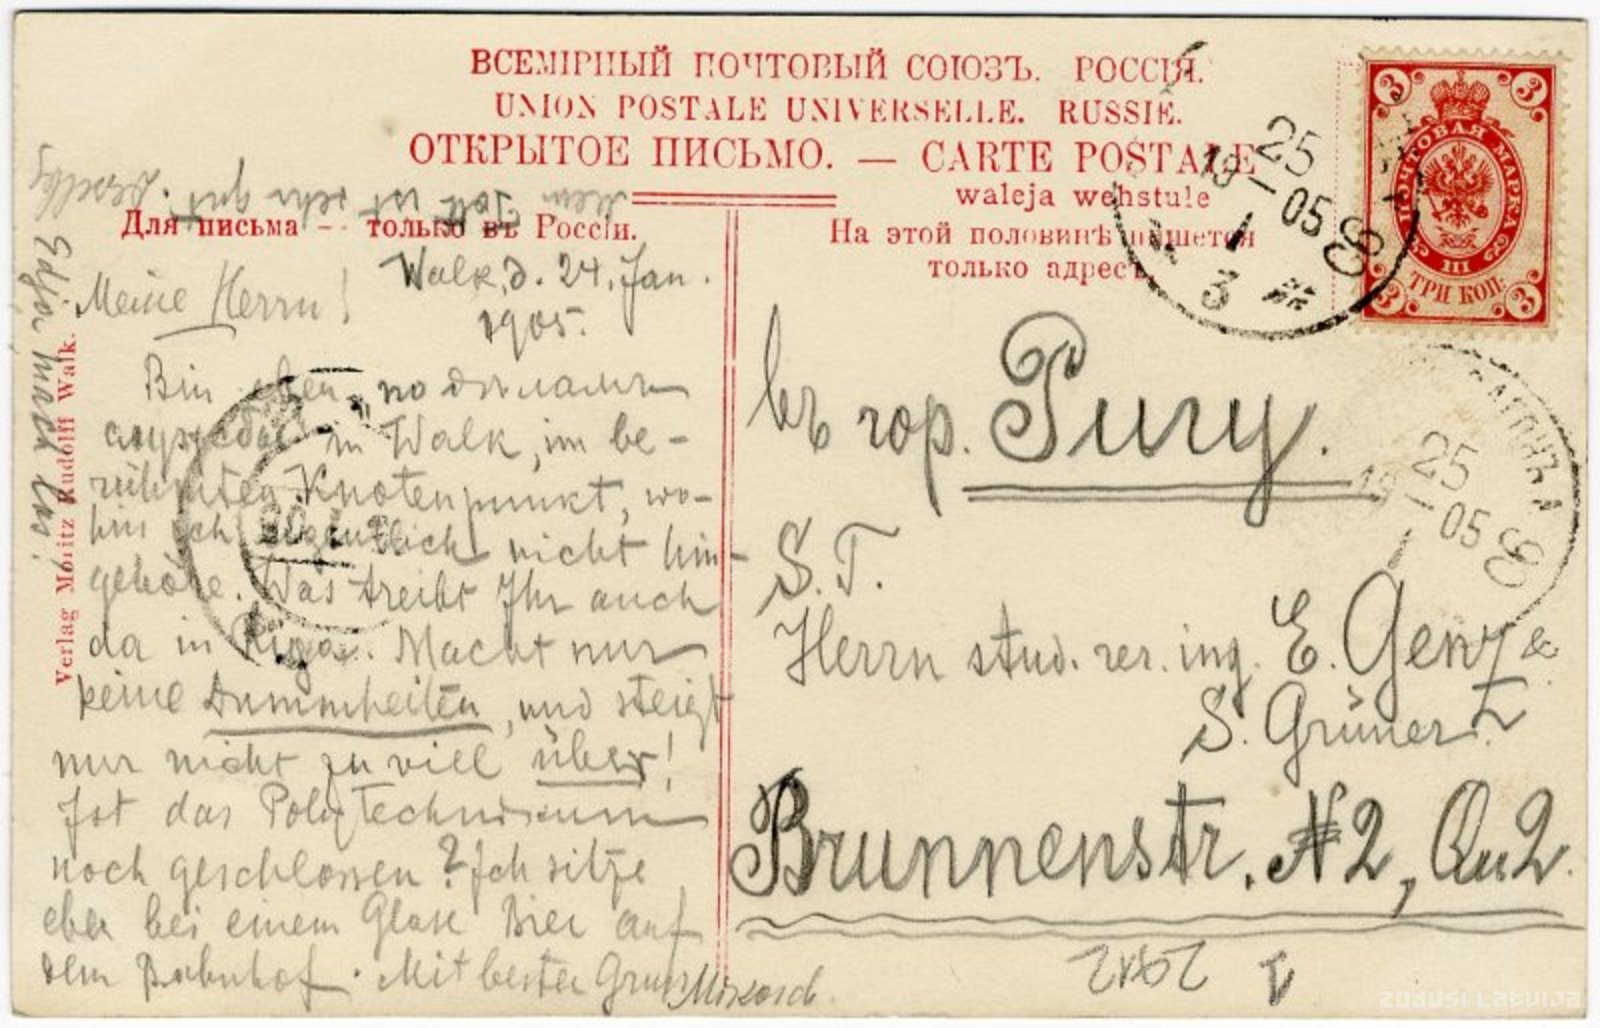 ВСЕМІРНЫЙ ПОЧТОВЫЙ СОЮЗЪ. РОССІЯ.
UNION POSTALE UNIVERSELLE. RUSSIE.
ОТКРЫТОЕ ПИСЬМО. — CARTE POSTALE
waleja wehstule
Для письма — только въ Россіи.
На этой половинѣ пишется
только адресъ.
ПОЧТОВАЯ МАРКА
III
ТРИ КОП.
3 3 3 3
25
1
19 — 05
3
25
19 — 05
Verlag Moritz Rudolff Walk.
ist sehr gut.
mach las!
Walk, d. 24. Jan.
1905.
Meine Herrn!
Bin eben по дѣламъ
in Walk, im be-
rühmten Knotenpunkt, wo-
hin ich eigentlich nicht hin-
gehöre. Was treibt Ihr auch
da in Riga. Macht nur
keine Dummheiten, und steigt
nur nicht zu viel über!
Ist das Polytechnikum
noch geschlossen? Ich sitze
eben bei einem Glase Bier auf
dem Bahnhof. Mit besten Gruss
въ гор. Ригу.
S. T.
Herrn stud. rer. ing. E. Genz &
S. Grüner.
Brunnenstr. № 2, Qu 2.
zudusi latvija